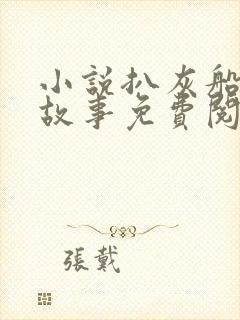 小說扒灰船
故事免費閱
張戴